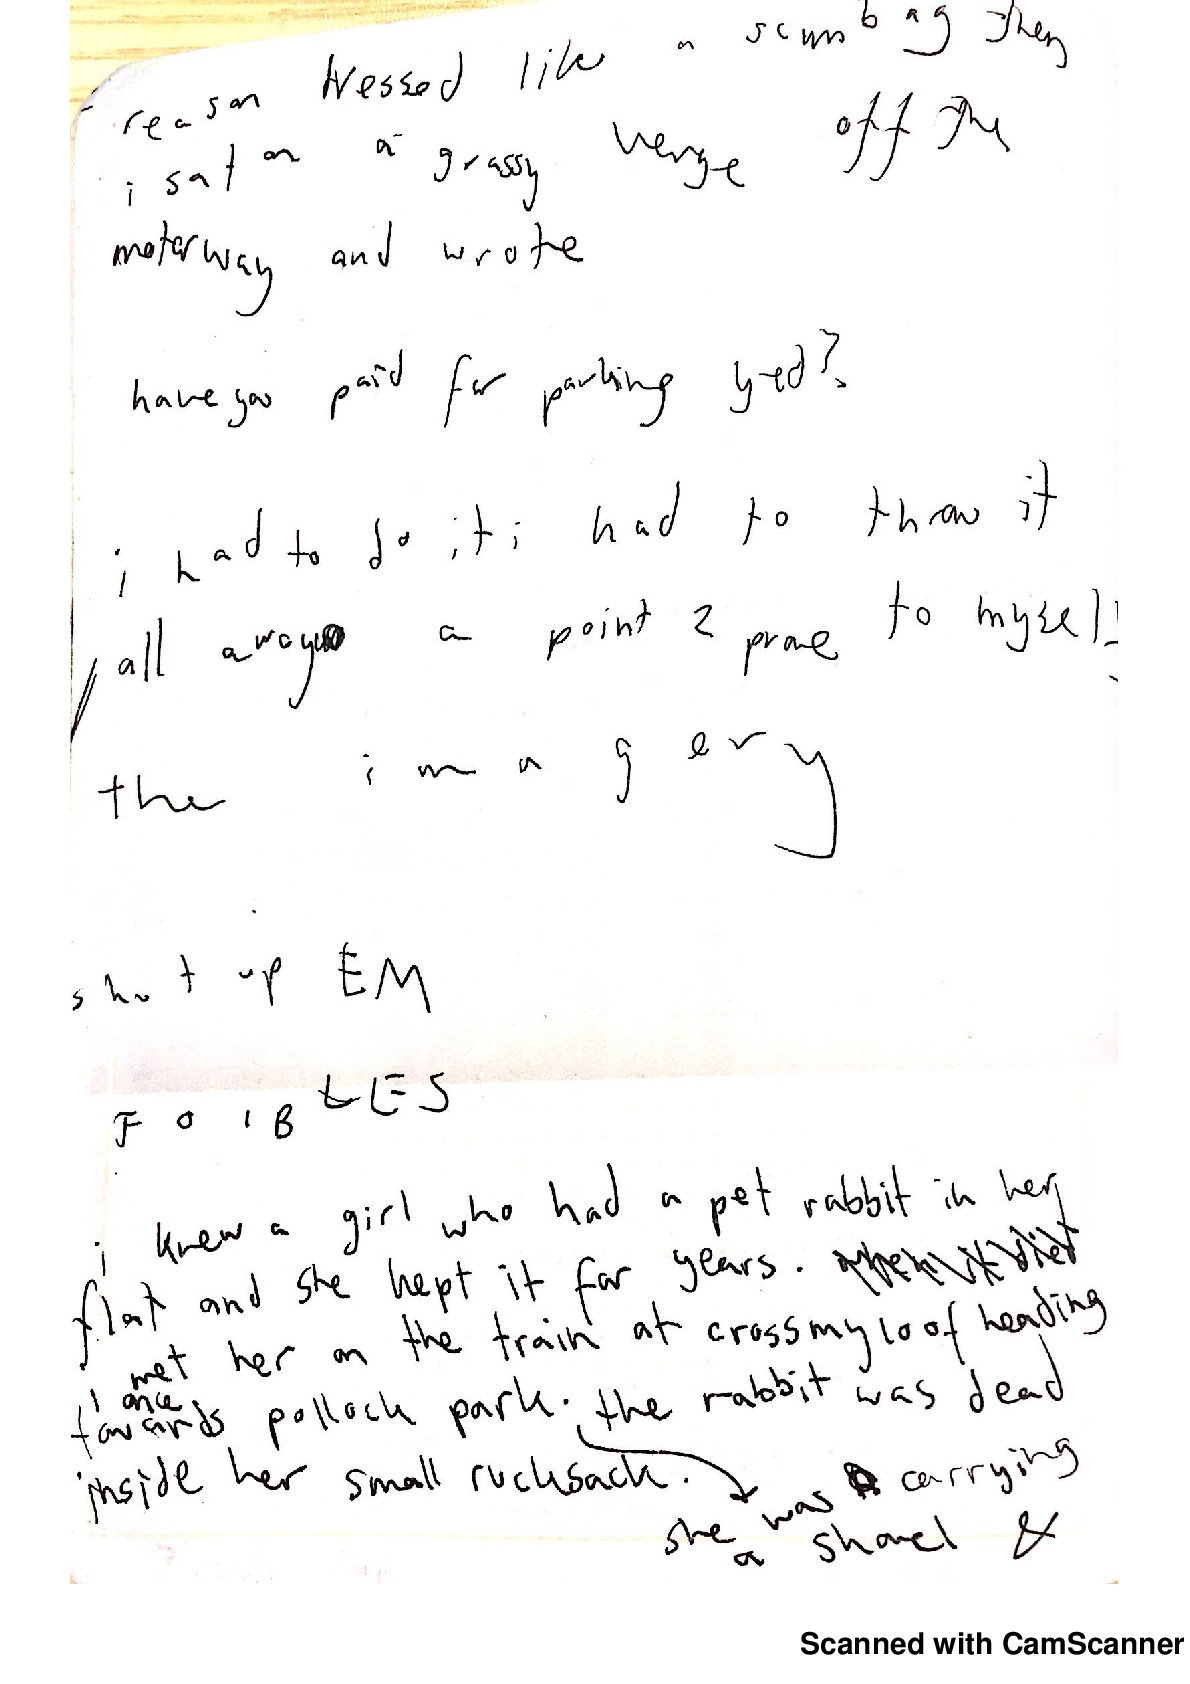 reason dressed like a scumbag then
i sat on a grassy verge off the
motorway and wrote
have you paid for parking yed?
i had to do it i had to throw it
all away a point 2 prove to myself
the imagery
shut up EM
FOIBLES
i knew a girl who had a pet rabbit in her
flat and she kept it for years. when it died
i once met her on the train at crossmyloof heading
towards pollock park. the rabbit was dead
inside her small rucksack.
she was carrying
a shovel &
Scanned with CamScanner